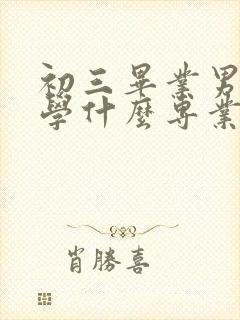 初三畢業男
學什麼專業
肖勝喜